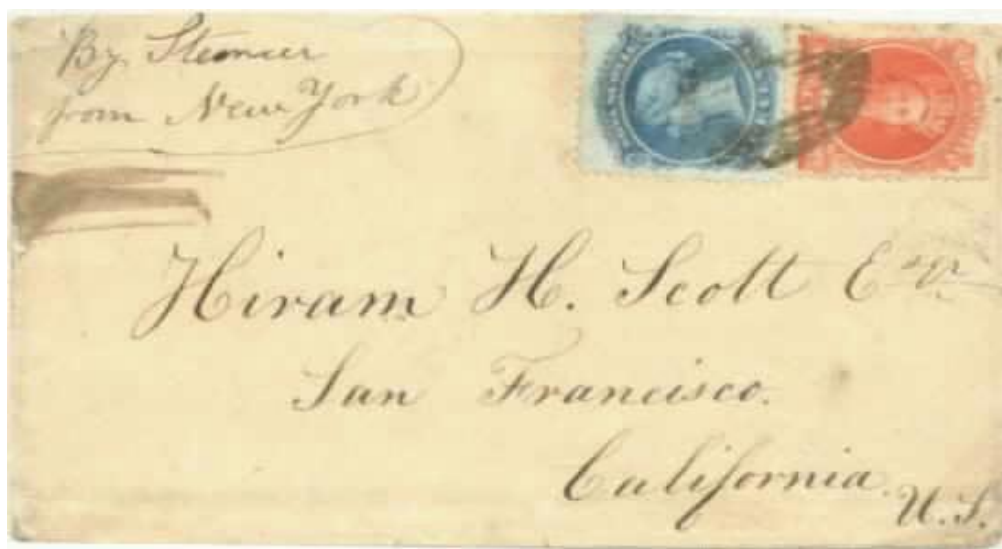 By Steamer
from New York
Hiram H. Scott Esqr
San Francisco.
California.
U.S.